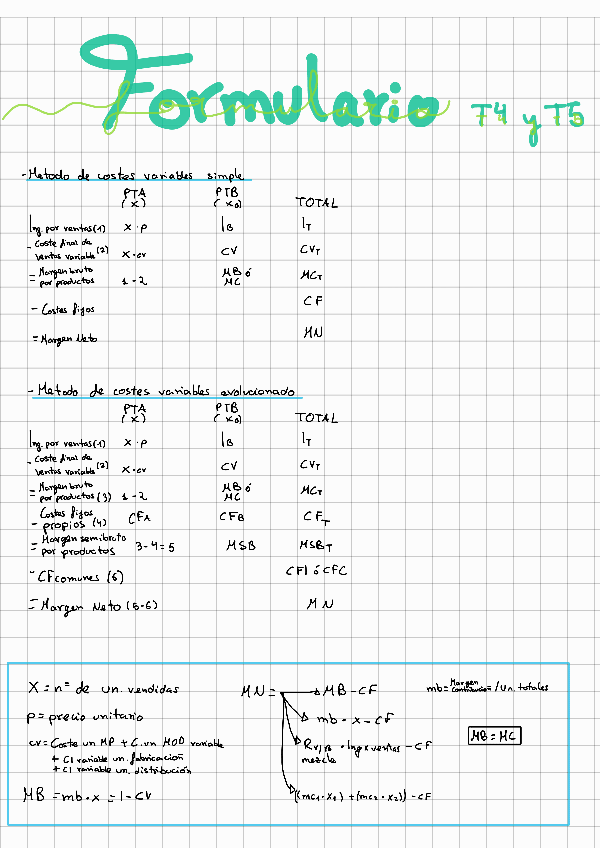 Formulario T4 y T5
- Metodo de costes variables simple
PTA (x) PTB (x₀) TOTAL
Ing. por ventas (1) x · p I_B I_T
- Coste final de ventas variable (2) x · cv CV CV_T
= Margen bruto por productos 1 - 2 MB ó MC MC_T
- Costes fijos CF
= Margen Neto MN
- Metodo de costes variables evolucionado
PTA (x) PTB (x₀) TOTAL
Ing. por ventas (1) x · p I_B I_T
- Coste final de ventas variable (2) x · cv CV CV_T
= Margen bruto por productos (3) 1 - 2 MB ó MC MC_T
- Costes fijos propios (4) CF_A CF_B CF_T
= Margen semibruto por productos 3 - 4 = 5 MSB MSB_T
- CF comunes (6) CFI ó CFC
= Margen Neto (5-6) MN
X = nº de un. vendidas
p = precio unitario
cv = Coste un MP + C. un MOD variable
+ CI variable un. fabricación
+ CI variable un. distribución
MB = mb · x = I - CV
MN = MB - CF
mb · x - CF
mezcla · Ing x ventas - CF
[(mc₁ · x₁) + (mc₂ · x₂)] - CF
mb = Margen contribución / un. totales
MB = MC